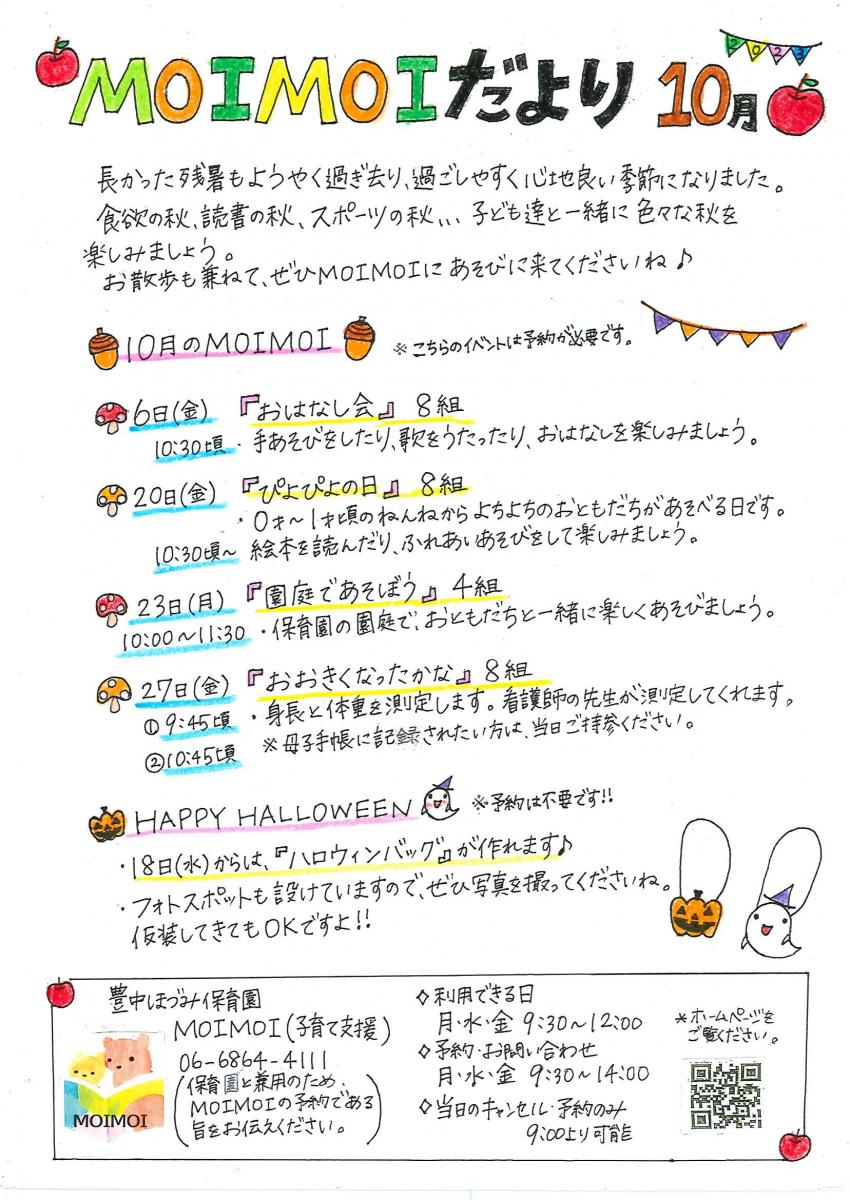 2023
MOIMOIだより 10月
長かった残暑もようやく過ぎ去り、過ごしやすく心地良い季節になりました。
食欲の秋、読書の秋、スポーツの秋､､､ 子ども達と一緒に色々な秋を
楽しみましょう。
お散歩も兼ねて、ぜひMOIMOIにあそびに来てくださいね♪
10月のMOIMOI ※こちらのイベントは予約が必要です。
6日(金) 『おはなし会』 8組
10:30頃 ・手あそびをしたり、歌をうたったり、おはなしを楽しみましょう。
20日(金) 『ぴよぴよの日』 8組
・0才〜1才頃のねんねからよちよちのおともだちがあそべる日です。
10:30頃〜 絵本を読んだり、ふれあいあそびをして楽しみましょう。
23日(月) 『園庭であそぼう』 4組
10:00〜11:30 ・保育園の園庭で、おともだちと一緒に楽しくあそびましょう。
27日(金) 『おおきくなったかな』 8組
①9:45頃 ・身長と体重を測定します。看護師の先生が測定してくれます。
②10:45頃 ※母子手帳に記録されたい方は、当日ご持参ください。
HAPPY HALLOWEEN ※予約は不要です!!
・18日(水)からは、『ハロウィンバッグ』が作れます♪
・フォトスポットも設けていますので、ぜひ写真を撮ってくださいね。
仮装してきてもOKですよ!!
豊中ほづみ保育園
MOIMOI(子育て支援)
06-6864-4111
(保育園と兼用のため、
MOIMOIの予約である
旨をお伝えください。)
MOIMOI
◇利用できる日
月・水・金 9:30〜12:00
◇予約・お問い合わせ
月・水・金 9:30〜14:00
◇当日のキャンセル・予約のみ
9:00より可能
*ホームページを
ご覧ください。